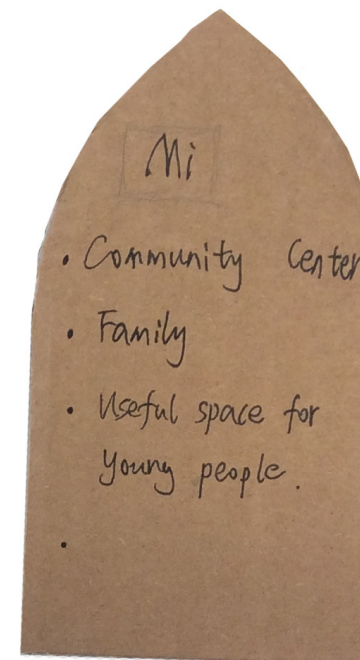 Mi
• Community Center
• Family
• Useful space for
young people.
•